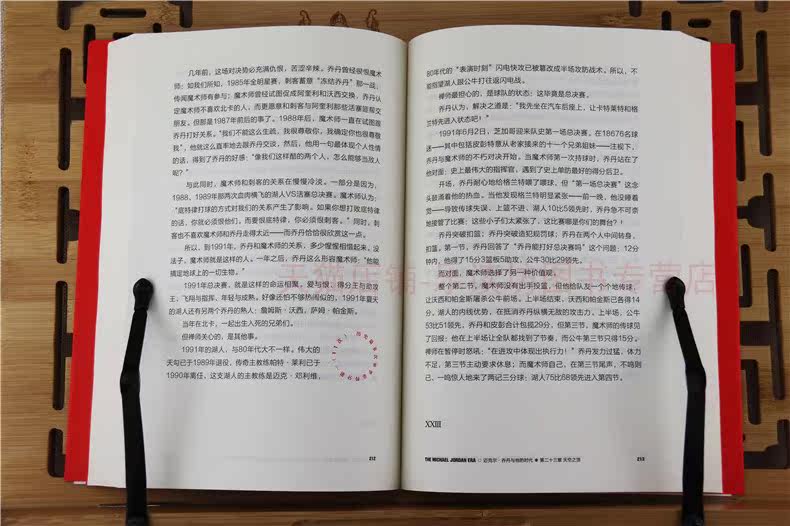 几年前，这场对决势必充满仇恨，苦涩辛辣。乔丹曾经很恨魔术
师：如我们所知，1985年全明星赛，刺客蓄意“冻结乔丹”那一战；
传闻魔术师有参与；魔术师曾经试图促成阿奎利和沃西交换，乔丹认
定魔术师不喜欢北卡的人，而更愿意和刺客与阿奎利那些活塞匪帮交
朋友。但那是1987年前后的事了。1988年后，魔术师一直在试图跟
乔丹打好关系。“我们不能这么生疏，我很尊敬你，我确定你也很尊敬
我”，他就这么直率地去跟乔丹交谈，然后，他用一句最体现个人性情
的话，得到了乔丹的好感：“像我们这样酷的两个人，怎么能够当敌人
呢？”
与此同时，魔术师和刺客的关系在慢慢冷淡。一部分是因为，
1988、1989年那两次血肉横飞的湖人VS活塞总决赛。魔术师认为：
“底特律打球的方式对我们的关系产生了影响。如果你想打败底特律
的话，你就必须恨他们，而要恨底特律，你必须恨刺客。”同时，刺
客也不喜欢魔术师和乔丹走得太近——而乔丹恰恰很欣赏这一点。
所以，到1991年，乔丹和魔术师的关系，多少惺惺相惜起来。没
法子，魔术师就是这样的人。一年之后，乔丹这么形容魔术师：“他能
搞定地球上的一切生物。”
1991年总决赛，就是这样的命运相聚，爱与恨，得分王与助攻
王，飞翔与指挥，年轻与成熟。好像还怕不够热闹似的，1991年夏天
的湖人还有另两个乔丹的熟人：詹姆斯·沃西，萨姆·帕金斯。
当年在北卡，一起出生入死的兄弟们。
但禅师关心的，是其他事。
1991年的湖人，与80年代大不一样。伟大的
天勾已于1989年退役，传奇主教练帕特·莱利已于
1990年离任，这支湖人的主教练是迈克·邓利维，
212
80年代的“表演时刻”闪电快攻已被篡改成半场攻防战术。所以，不
能指望湖人跟公牛打往返闪电战。
禅师最担心的，是球队的状态：这毕竟是总决赛。
乔丹认为，解决之道是：“我先坐在汽车后座上，让卡特莱特和格
兰特先进入状态吧！”
1991年6月2日，芝加哥迎来队史第一场总决赛。在18676名球
迷——其中包括皮彭特意从老家接来的十一个兄弟姐妹——注视下，
乔丹与魔术师的不朽对决开始，当魔术师第一次持球时，乔丹站在了
他对面：史上最伟大的指挥官，遇到了史上单防最好的得分后卫。
开场，乔丹耐心地给格兰特喂了喂球，但“第一场总决赛”这念
头鼓涌着他的热血。当他发现格兰特明显紧张——前一晚，他没睡着
觉——导致传球失误，上篮不进、湖人10比5领先时，乔丹急不可奈
地接管了比赛：这些小子们太紧张了，这比赛哪是你们的舞台？！
乔丹突破扣篮；乔丹突破造犯规罚球；乔丹在两个人中间转身，
扣篮，第一节，乔丹回答了“乔丹能打好总决赛吗”这个问题：12分
钟内，他得了15分3篮板5助攻，公牛30比29领先。
而对面，魔术师选择了另一种价值观。
整个第二节，魔术师没有出手投篮，但他给队友一个个地传球，
让沃西和帕金斯屠杀公牛前场。上半场结束，沃西和帕金斯已各得14
分。湖人的内线优势，在抵消乔丹纵横无敌的攻击力，上半场，公牛
53比51领先，乔丹和皮彭合计包揽29分，但第三节，魔术师的传球见
了回报：他在上半场让全队都找到了节奏，而公牛第三节只得15分。
禅师在暂停时怒吼：“在进攻中体现出执行力！”乔丹发力过猛，体力
不足，第三节主动要求休息；而魔术师自己，在第三节尾声，不鸣则
已，一鸣惊人地来了两记三分球：湖人75比68领先进入第四节。
XXIII
THE MICHAEL JORDAN ERA
迈克尔·乔丹与他的时代 ● 第二十三章 天空之顶
213